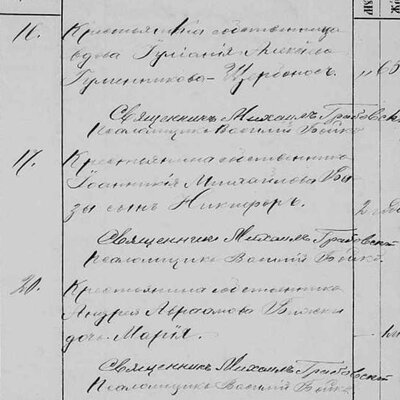 16.
Крестьянка собственница
вдова Іуліанія Алексѣева
Гуменникова - Щербоносъ.
65
Священникъ Михаилъ Грабовскій
Псаломщикъ Василій Бойко
17.
Крестьянина собственника
Іоанникія Михайлова
зы сынъ Никифоръ.
2
Священникъ Михаилъ Грабовскій
Псаломщикъ Василій Бойко.
20.
Крестьянина собственника
Андрея Авраамова
дочь Марія.
Священникъ Михаилъ Грабовскій
Псаломщикъ Василій Бойко